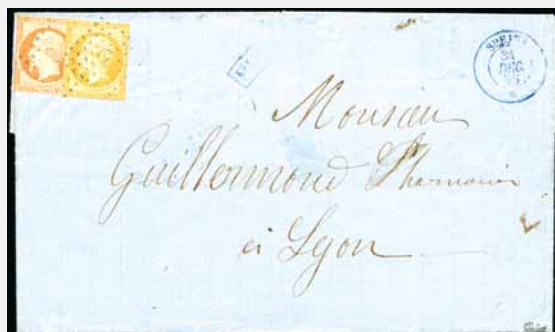 31
DEC
Monsieur
Guillermond Pharmacien
à Lyon